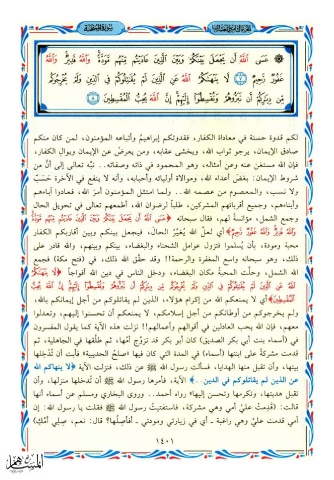 عَسَى اللَّهُ أَن يَجْعَلَ بَيْنَكُمْ وَبَيْنَ الَّذِينَ عَادَيْتُم مِّنْهُم مَّوَدَّةً وَاللَّهُ قَدِيرٌ وَاللَّهُ
غَفُورٌ رَّحِيمٌ ٧ لَّا يَنْهَاكُمُ اللَّهُ عَنِ الَّذِينَ لَمْ يُقَاتِلُوكُمْ فِي الدِّينِ وَلَمْ يُخْرِجُوكُم
مِّن دِيَارِكُمْ أَن تَبَرُّوهُمْ وَتُقْسِطُوا إِلَيْهِمْ إِنَّ اللَّهَ يُحِبُّ الْمُقْسِطِينَ ٨
لكم قدوة حسنة في معاداة الكفار، فقدوتكم إبراهيمُ وأتباعه المؤمنون، لمن كان منكم
صادق الإيمان، يرجو ثواب الله، ويخشى عقابه، ومن يعرض عن الإيمان ويوالِ الكفار،
فإن الله مستغنٍ عنه وعن أمثاله، وهو المحمود في ذاته وصفاته.. نبّه تعالى إلى أنَّ من
شروط الإيمان: بغضَ أعداء الله، وموالاة أوليائه وأحبابه، وأنه لا ينفع في الآخرة حَسَبٌ
ولا نسب، والمعصوم من عصمه الله.. ولما امتثل المؤمنون أمرَ الله، فعادَوا آباءهم
وأبناءهم، وجميع أقربائهم المشركين، طلباً لرضوان الله، أطمعهم تعالى في تحويل الحال
وجمع الشمل، مؤانسةً لهم، فقال سبحانه ﴿عَسَى اللَّهُ أَن يَجْعَلَ بَيْنَكُمْ وَبَيْنَ الَّذِينَ عَادَيْتُم مِّنْهُم مَّوَدَّةً
وَاللَّهُ قَدِيرٌ وَاللَّهُ غَفُورٌ رَّحِيمٌ﴾ أي لعلَّ الله يُغيِّر الحال، فيجعل بينكم وبين أقاربكم الكفار
محبة ومودة، بأن يُسلموا فتزول عوامل الشحناء والبغضاء، بينكم وبينهم، والله قادر على
ذلك، وهو سبحانه واسع المغفرة والرحمة!! وقد حقَّق الله ذلك، في (فتح مكة) فجمع
الله الشمل، وحلَّت المحبة مكان البغضاء، ودخل الناس في دين الله أفواجاً ﴿لَّا يَنْهَاكُمُ
اللَّهُ عَنِ الَّذِينَ لَمْ يُقَاتِلُوكُمْ فِي الدِّينِ وَلَمْ يُخْرِجُوكُم مِّن دِيَارِكُمْ أَن تَبَرُّوهُمْ وَتُقْسِطُوا إِلَيْهِمْ إِنَّ اللَّهَ يُحِبُّ
الْمُقْسِطِينَ﴾ أي لا يمنعكم الله من إكرام هؤلاء، الذين لم يقاتلوكم من أجل إيمانكم بالله،
ولم يخرجوكم من أوطانكم من أجل إسلامكم، لا يمنعكم أن تحسنوا إليهم، وتعدلوا
معهم، فإن الله يحب العادلين في أقوالهم وأعمالهم!! نزلت هذه الآية كما يقول المفسرون
في (أسماء بنت أبي بكر الصديق) كان أبو بكر قد تزوَّج أمَّها، ثم طلَّقها في الجاهلية، ثم
قدمت مشركةً على ابنتها (أسماء) في المدة التي كان فيها «صلحُ الحديبية» فأبت أن تُدْخِلها
بيتها، وأن تقبل منها الهدايا، فسألت رسول الله ﷺ عن ذلك، فنزلت الآية ﴿لا ينهاكم الله
عن الذين لم يقاتلوكم في الدين..﴾ الآية، فأمرها رسول الله ﷺ أن تُدخلها منزلها، وأن
تقبل هديتها، وتكرمها وتحسن إليها» رواه أحمد.. وروى البخاري ومسلم عن أسماء أنها
قالت: (قدِمتْ عليَّ أمي وهي مشركة، فاستفتيتُ رسول الله ﷺ فقلت يا رسول الله: إن
أمي قدمت عليَّ وهي راغبة - أي في زيارتي ومودتي - أفأصِلُها؟ قال: نعم، صِلِي أُمَّكِ)
١٤٠١